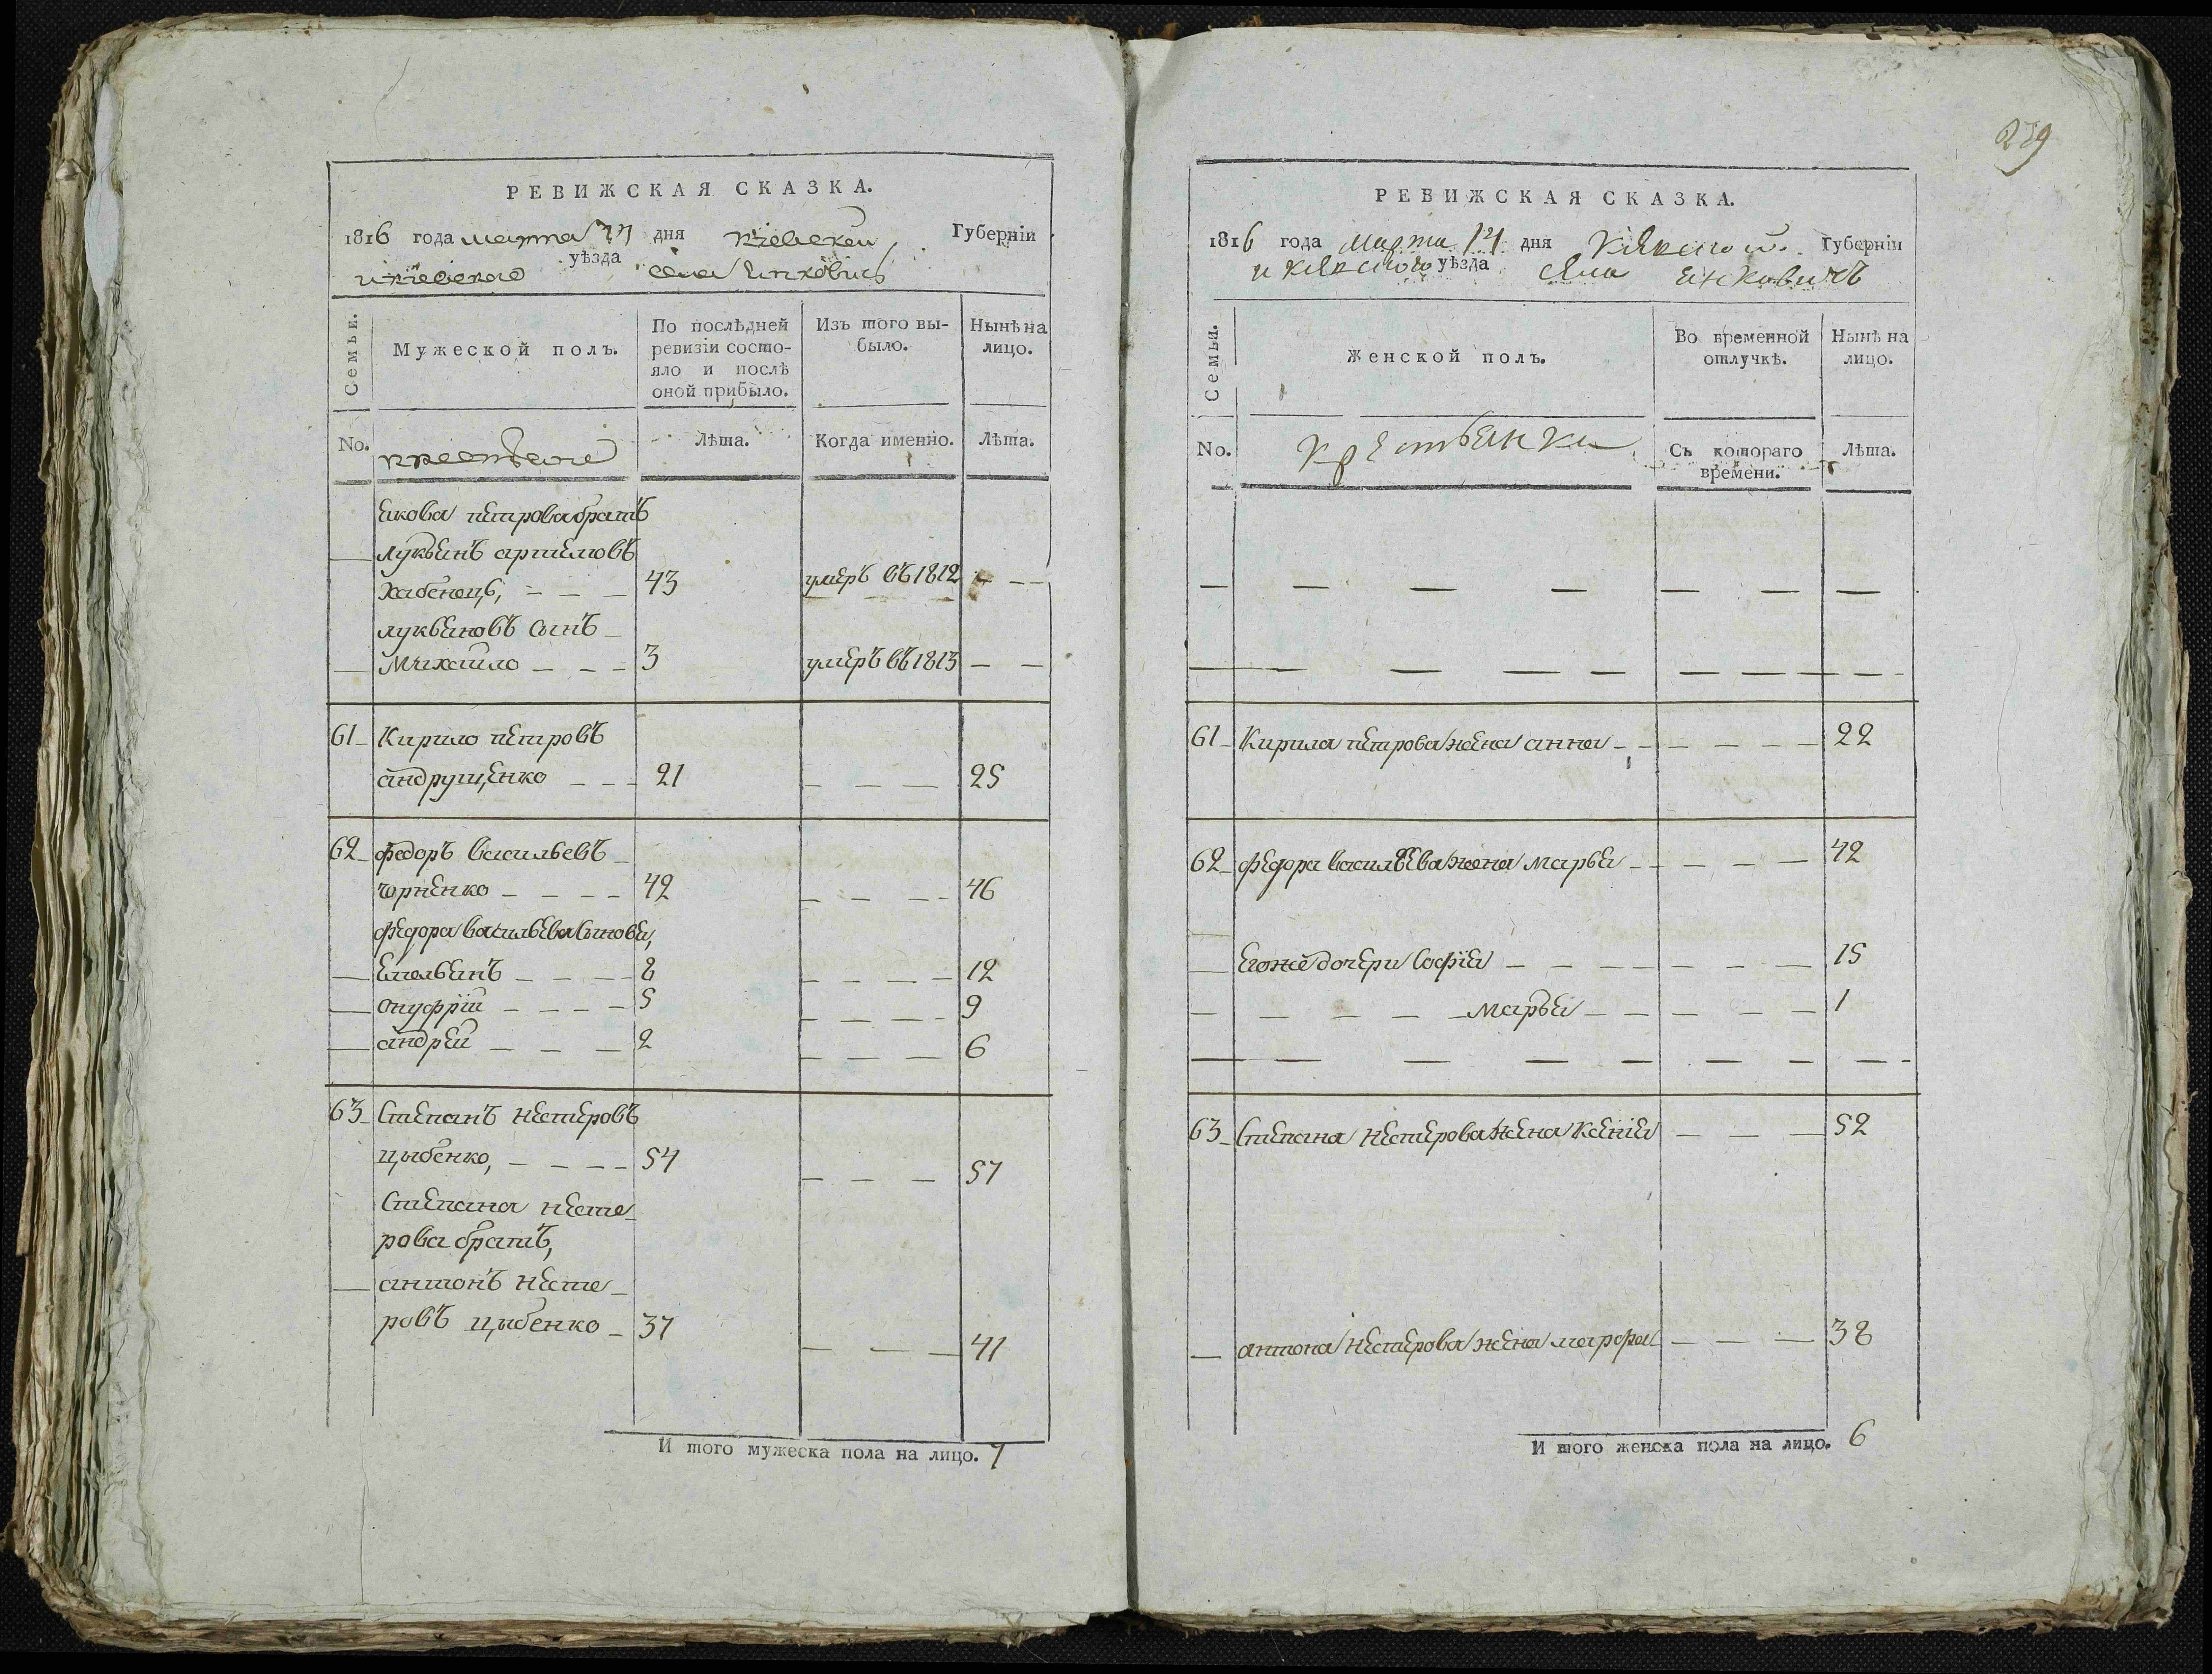 РЕВИЖСКАЯ СКАЗКА.
1816 года марта 14 дня киевской Губерніи
и киевского уѣзда села Янковичь
Семьи.
Мужеской полъ.
По послѣдней
ревизіи состо-
яло и послѣ
оной прибыло.
Изъ того вы-
было.
Нынѣ на
лицо.
No.
крестьяне
Лѣта.
Когда именно.
Лѣта.
Якова петрова братъ
лукьянъ артемовъ
Хабенецъ, 43 умеръ въ 1812
лукьяновъ сынъ
Михайло 3 умеръ въ 1813
61 Кирило петровъ
андрущенко 21 25
62 федоръ васильевъ
чорненко 42 46
федора васильева сыновья,
Емельянъ 8 12
онуфрій 5 9
андрей 2 6
63 Степанъ нестеровъ
цыбенко, 54 57
Степана несте
рова братъ,
антонъ несте
ровъ цыбенко 37 41
И того мужеска пола на лицо. 7
239
РЕВИЖСКАЯ СКАЗКА.
1816 года Марта 14 дня Губерніи
и уѣзда села Янковичъ
Семьи.
Женской полъ.
Во временной
отлучкѣ.
Нынѣ на
лицо.
No.
крестьянки
Съ котораго
времени.
Лѣта.
61 Кирила петрова жена анна 22
62 федора васильева жена Марья 42
Егоже дочери Софія 15
Марья 1
63 Степана нестерова жена Ксенія 52
антона нестерова жена марфа 38
И того женска пола на лицо. 6